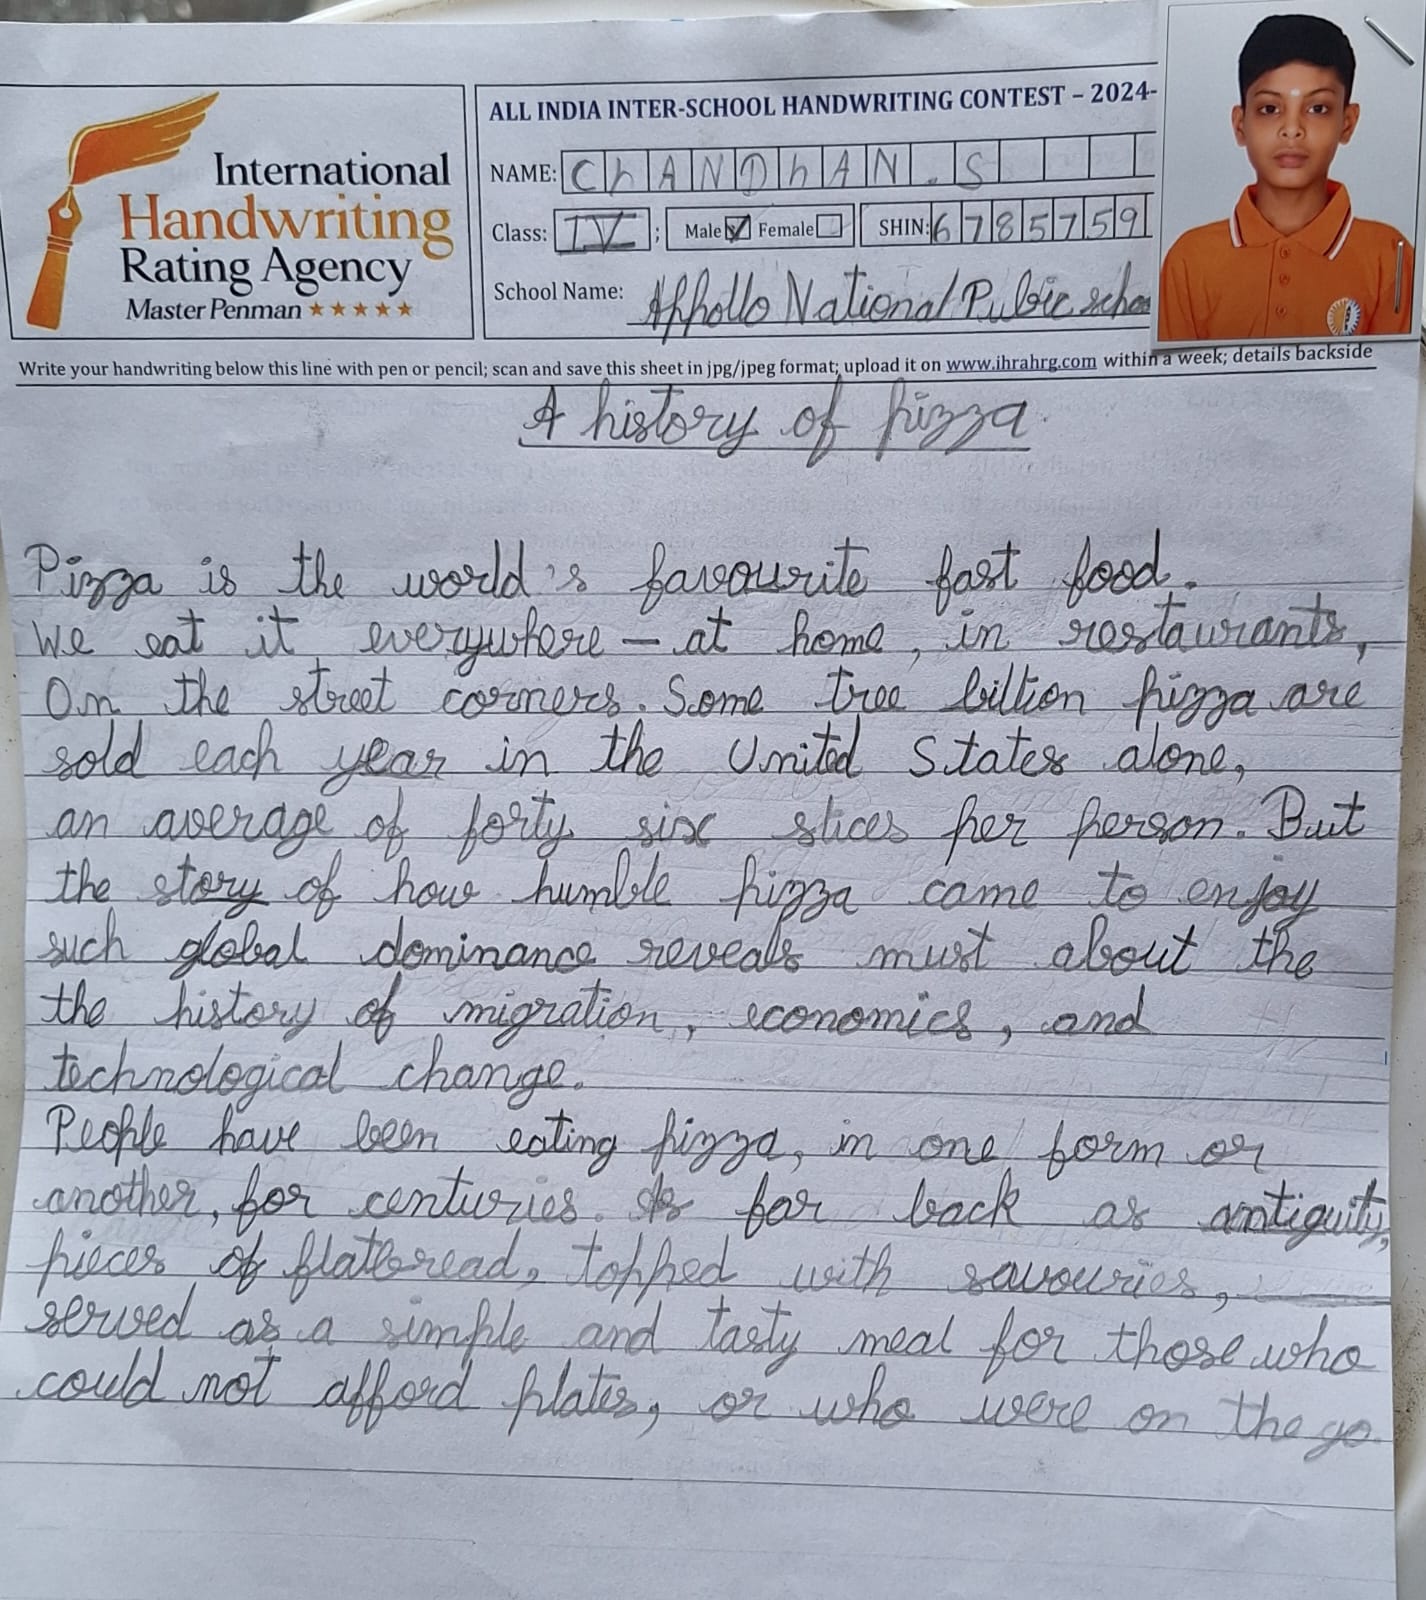 International
Handwriting
Rating Agency
Master Penman ★★★★★
ALL INDIA INTER-SCHOOL HANDWRITING CONTEST – 2024-
NAME: ChANDhAN. S
Class: IV ; Male ☑ Female ☐ SHIN: 6785759
School Name: Appollo National Public schoo
Write your handwriting below this line with pen or pencil; scan and save this sheet in jpg/jpeg format; upload it on www.ihrahrg.com within a week; details backside
A history of pizza
Pizza is the world's favourite fast food.
We eat it everywhere – at home, in restaurants,
On the street corners. Some tree billion pizza are
sold each year in the United States alone,
an average of forty six slices per person. But
the story of how humble pizza came to enjoy
such global dominance reveals must about the
the history of migration, economics, and
technological change.
People have been eating pizza, in one form or
another, for centuries. As far back as antiquity,
pieces of flatbread, topped with savouries,
served as a simple and tasty meal for those who
could not afford plates, or who were on the go.